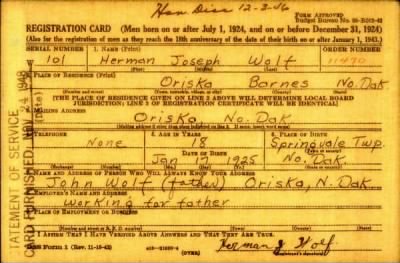 Hon Disc 12-3-46
FORM APPROVED
REGISTRATION CARD (Men born on or after July 1, 1924, and on or before December 31, 1924)
(Also for the registration of men as they reach the 18th anniversary of the date of their birth on or after January 1, 1943.)
SERIAL NUMBER 1. NAME (Print) ORDER NUMBER
101 Herman Joseph Wolf 11490
2. PLACE OF RESIDENCE (Print)
Oriska Barnes No. Dak
[THE PLACE OF RESIDENCE GIVEN ON LINE 2 ABOVE WILL DETERMINE LOCAL BOARD
JURISDICTION; LINE 2 OF REGISTRATION CERTIFICATE WILL BE IDENTICAL]
MAILING ADDRESS
Oriska No. Dak.
TELEPHONE 5. AGE IN YEARS 6. PLACE OF BIRTH
None 18 Springvale Twp.
DATE OF BIRTH
Jan 17 1925 No. Dak.
NAME AND ADDRESS OF PERSON WHO WILL ALWAYS KNOW YOUR ADDRESS
John Wolf (father) Oriska, N. Dak.
EMPLOYER'S NAME AND ADDRESS
Working for father
PLACE OF EMPLOYMENT OR BUSINESS
I AFFIRM THAT I HAVE VERIFIED ABOVE ANSWERS AND THAT THEY ARE TRUE.
FORM 1 (Rev. 11-16-42) (OVER) Herman J Wolf
STATEMENT OF SERVICE
CARD FURNISHED